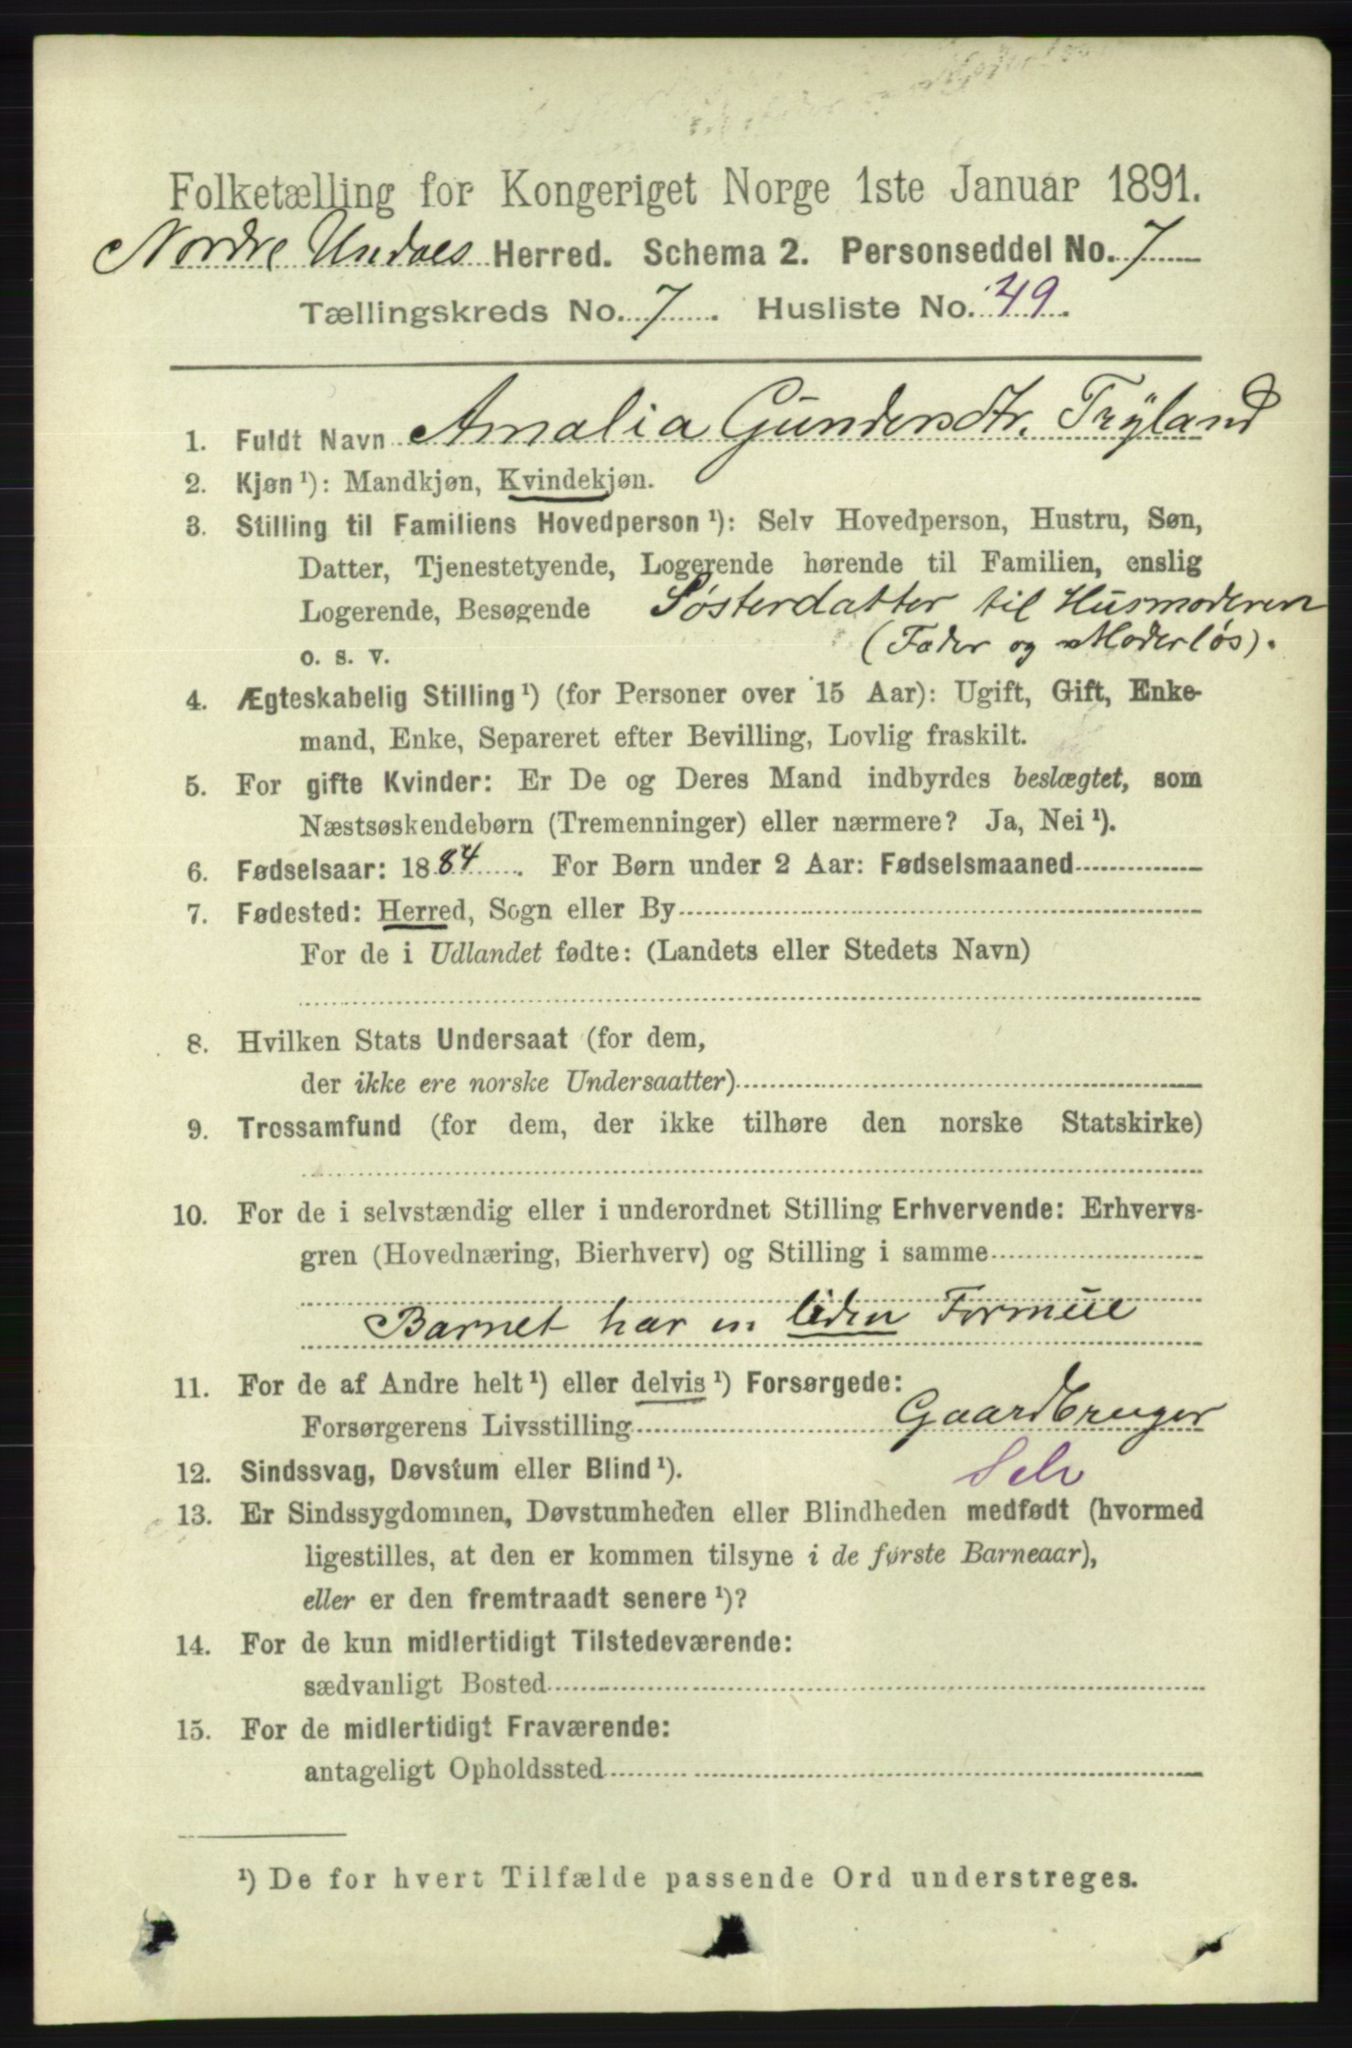 Folketælling for Kongeriget Norge 1ste Januar 1891.
Nordre Undals Herred. Schema 2. Personseddel No. 7
Tællingskreds No. 7. Husliste No. 49.
1. Fuldt Navn Amalia Gundersdtr. Trÿland
2. Kjøn ¹): Mandkjøn, Kvindekjøn.
3. Stilling til Familiens Hovedperson ¹): Selv Hovedperson, Hustru, Søn,
Datter, Tjenestetyende, Logerende hørende til Familien, enslig
Logerende, Besøgende Søsterdatter til Husmoderen
o. s. v. (Fader og Moderløs).
4. Ægteskabelig Stilling ¹) (for Personer over 15 Aar): Ugift, Gift, Enke-
mand, Enke, Separeret efter Bevilling, Lovlig fraskilt.
5. For gifte Kvinder: Er De og Deres Mand indbyrdes beslægtet, som
Næstsøskendebørn (Tremenninger) eller nærmere? Ja, Nei ¹).
6. Fødselsaar: 1884. For Børn under 2 Aar: Fødselsmaaned
7. Fødested: Herred, Sogn eller By
For de i Udlandet fødte: (Landets eller Stedets Navn)
8. Hvilken Stats Undersaat (for dem,
der ikke ere norske Undersaatter)
9. Trossamfund (for dem, der ikke tilhøre den norske Statskirke)
10. For de i selvstændig eller i underordnet Stilling Erhvervende: Erhvervs-
gren (Hovednæring, Bierhverv) og Stilling i samme
Barnet har en liden Formue
11. For de af Andre helt ¹) eller delvis ¹) Forsørgede:
Forsørgerens Livsstilling Gaardbruger
12. Sindssvag, Døvstum eller Blind ¹). Selv
13. Er Sindssygdommen, Døvstumheden eller Blindheden medfødt (hvormed
ligestilles, at den er kommen tilsyne i de første Barneaar),
eller er den fremtraadt senere ¹)?
14. For de kun midlertidigt Tilstedeværende:
sædvanligt Bosted
15. For de midlertidigt Fraværende:
antageligt Opholdssted
¹) De for hvert Tilfælde passende Ord understreges.